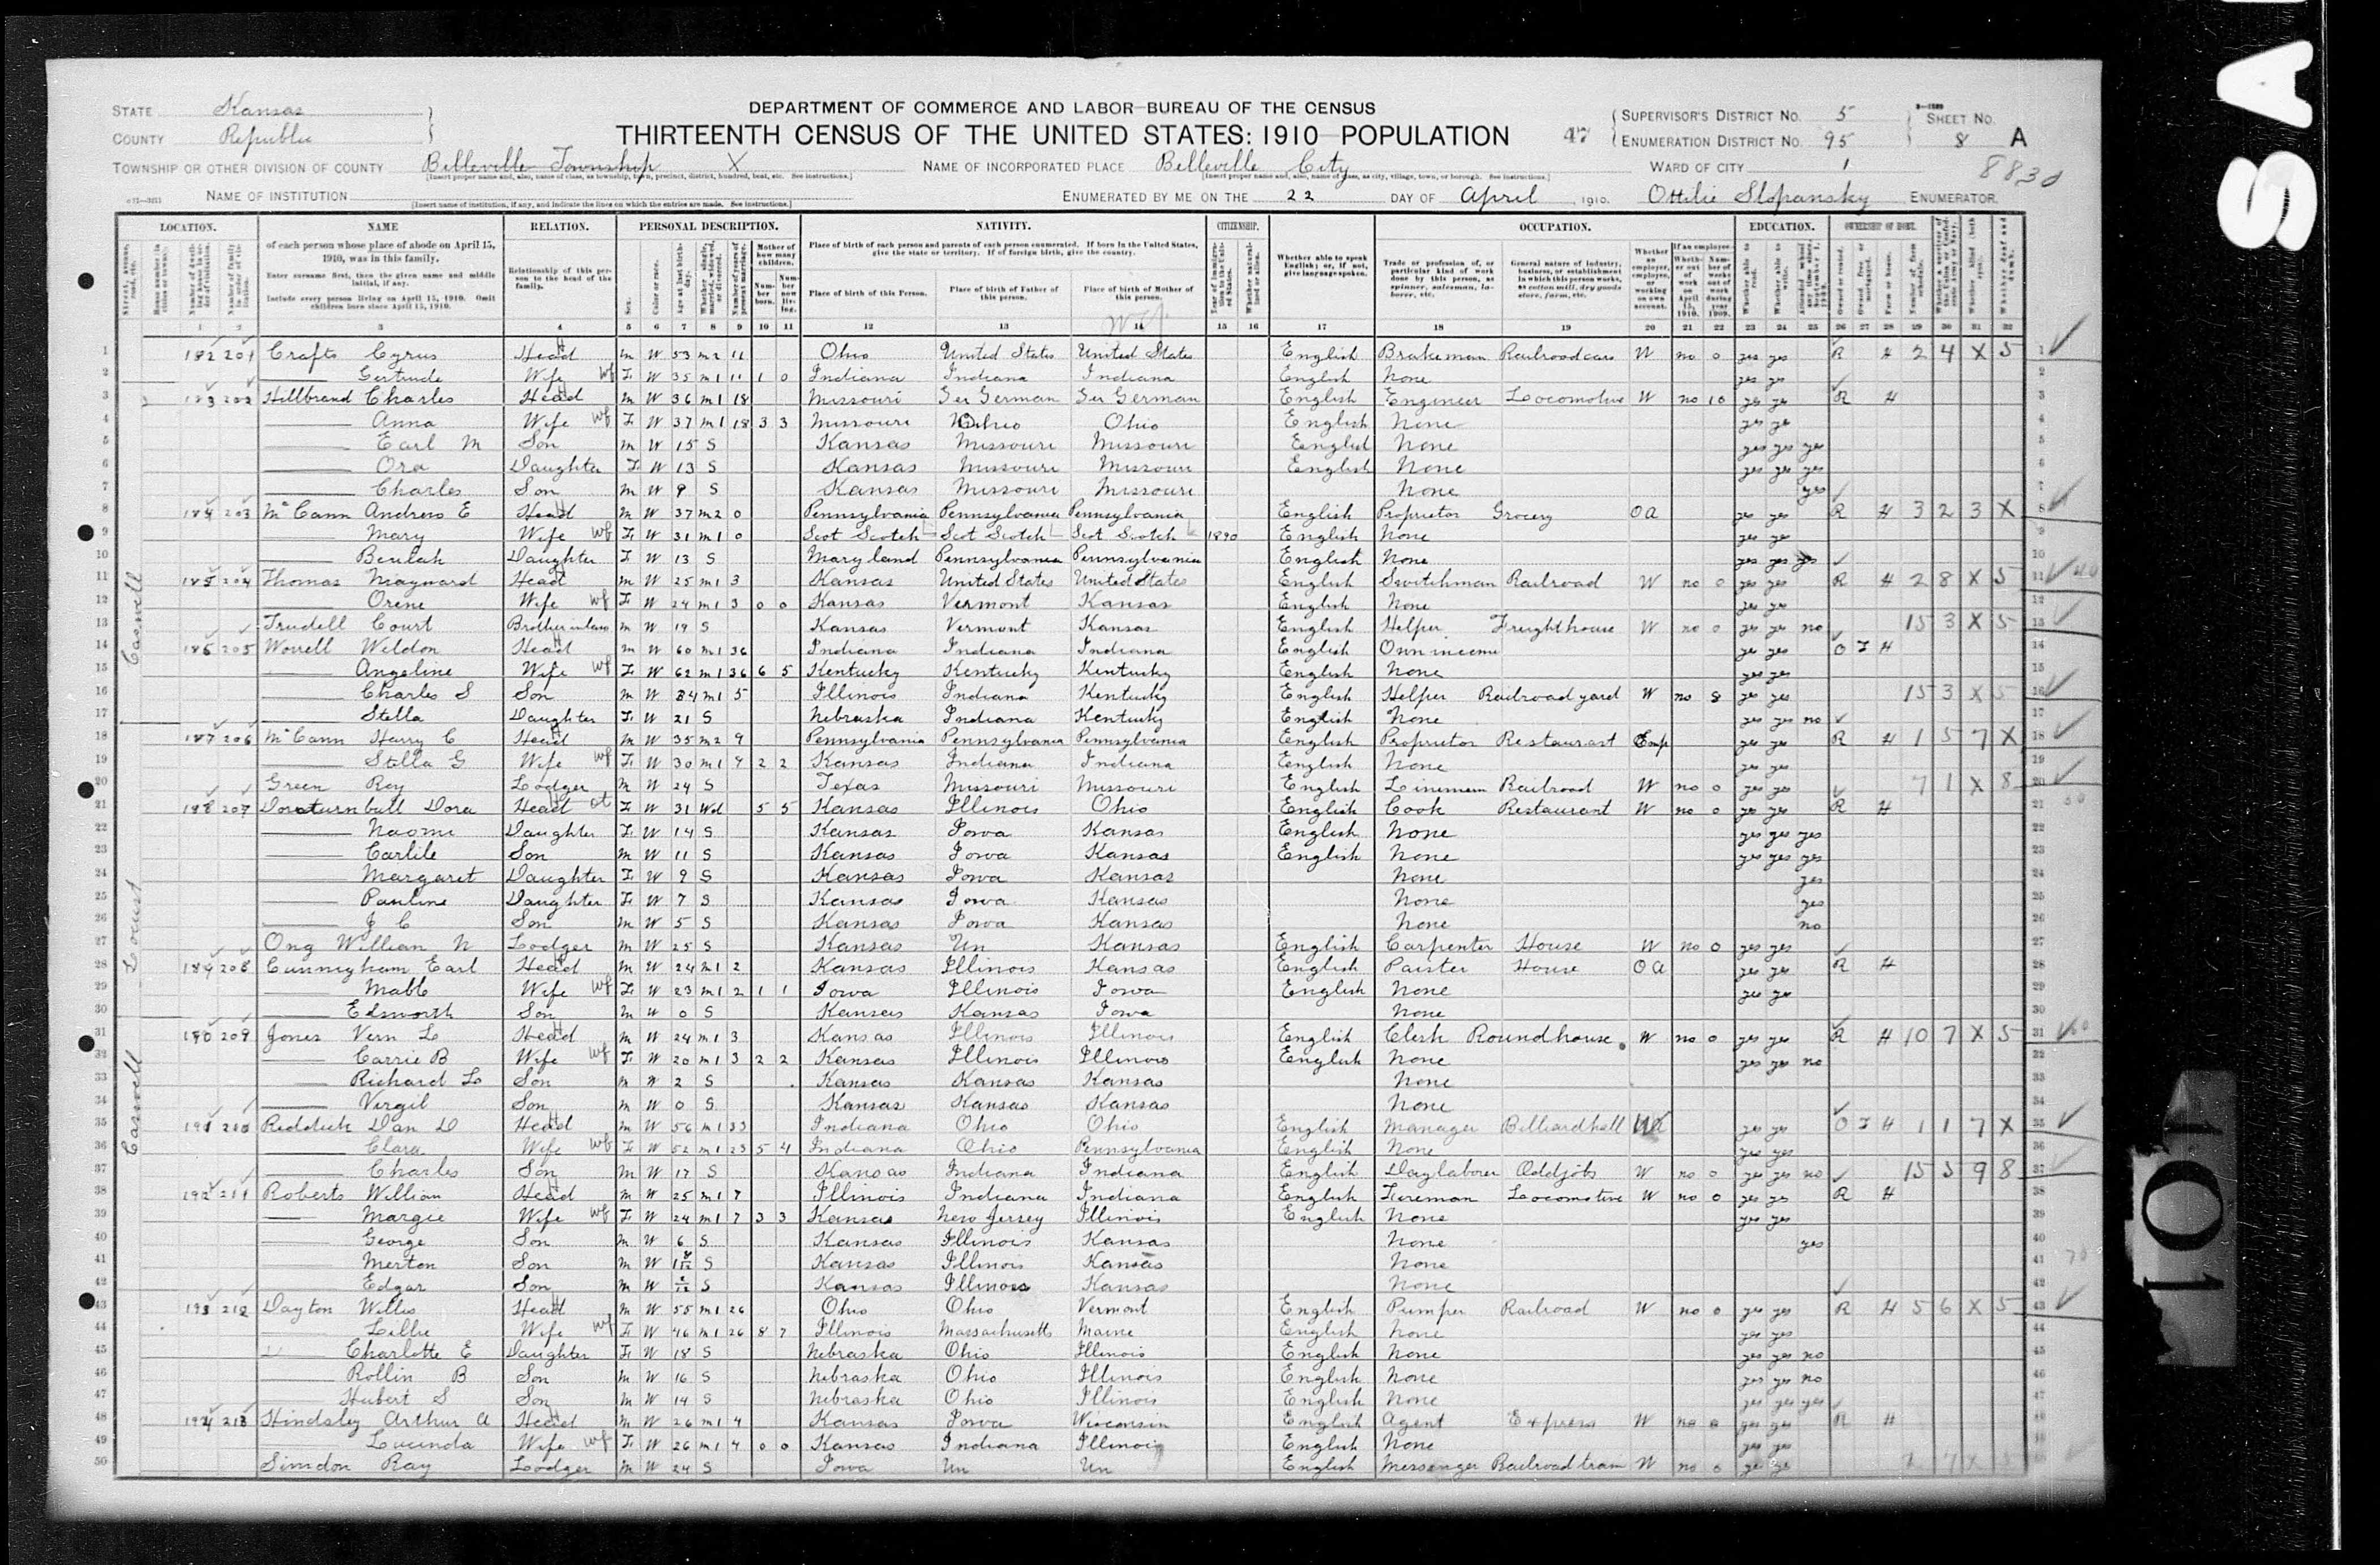 STATE Kansas
COUNTY Republic
TOWNSHIP OR OTHER DIVISION OF COUNTY Belleville Township X
NAME OF INSTITUTION
DEPARTMENT OF COMMERCE AND LABOR—BUREAU OF THE CENSUS
THIRTEENTH CENSUS OF THE UNITED STATES: 1910—POPULATION
NAME OF INCORPORATED PLACE Belleville City
ENUMERATED BY ME ON THE 22 DAY OF April, 1910. Ottilie Slopansky ENUMERATOR.
47
SUPERVISOR'S DISTRICT No. 5
ENUMERATION DISTRICT No. 95
SHEET No. 8 A
WARD OF CITY 1
8830
LOCATION. NAME RELATION. PERSONAL DESCRIPTION. NATIVITY. CITIZENSHIP. OCCUPATION. EDUCATION. OWNERSHIP OF HOME.
of each person whose place of abode on April 15, 1910, was in this family.
Enter surname first, then the given name and middle initial, if any.
Include every person living on April 15, 1910. Omit children born since April 15, 1910.
Relationship of this person to the head of the family.
Place of birth of each person and parents of each person enumerated. If born in the United States, give the state or territory. If of foreign birth, give the country.
Place of birth of this Person. Place of birth of Father of this person. Place of birth of Mother of this person.
Whether able to speak English; or, if not, give language spoken.
Trade or profession of, or particular kind of work done by this person, as spinner, salesman, laborer, etc.
General nature of industry, business, or establishment in which this person works, as cotton mill, dry goods store, farm, etc.
1 2 3 4 5 6 7 8 9 10 11 12 13 14 15 16 17 18 19 20 21 22 23 24 25 26 27 28 29 30 31 32
1 182 201 Crafts Cyrus Head M W 53 M2 11 Ohio United States United States English Brakeman Railroad cars W no 0 yes yes R H 2 4 X 5
2 Gertrude Wife F W 35 M1 11 1 0 Indiana Indiana Indiana English None yes yes
3 183 202 Hillbrand Charles Head M W 36 M1 18 Missouri Ger German Ger German English Engineer Locomotive W no 10 yes yes R H
4 Anna Wife F W 37 M1 18 3 3 Missouri Ohio Ohio English None yes yes
5 Earl M Son M W 15 S Kansas Missouri Missouri English None yes yes yes
6 Ora Daughter F W 13 S Kansas Missouri Missouri English None yes yes yes
7 Charles Son M W 9 S Kansas Missouri Missouri None yes
8 184 203 McCann Andrew E Head M W 37 M2 0 Pennsylvania Pennsylvania Pennsylvania English Proprietor Grocery OA yes yes R H 3 2 3 X
9 Mary Wife F W 31 M1 0 Scot Scotch Scot Scotch Scot Scotch 1890 English None yes yes
10 Beulah Daughter F W 13 S Maryland Pennsylvania Pennsylvania English None yes yes yes
11 185 204 Thomas Maynard Head M W 25 M1 3 Kansas United States United States English Switchman Railroad W no 0 yes yes R H 2 8 X 5
12 Orene Wife F W 24 M1 3 0 0 Kansas Vermont Kansas English None yes yes
13 Trudell Court Brother in law M W 19 S Kansas Vermont Kansas English Helper Freighthouse W no 0 yes yes no 15 3 X 5
14 186 205 Worrell Weldon Head M W 60 M1 36 Indiana Indiana Indiana English Own income yes yes O F H
15 Angeline Wife F W 62 M1 36 6 5 Kentucky Kentucky Kentucky English None yes yes
16 Charles S Son M W 34 M1 5 Illinois Indiana Kentucky English Helper Railroad yard W no 8 yes yes 15 3 X 5
17 Stella Daughter F W 21 S Nebraska Indiana Kentucky English None yes yes no
18 187 206 McCann Harry C Head M W 35 M2 9 Pennsylvania Pennsylvania Pennsylvania English Proprietor Restaurant Emp yes yes R H 1 5 7 X
19 Stella G Wife F W 30 M1 9 2 2 Kansas Indiana Indiana English None yes yes
20 Green Roy Lodger M W 24 S Texas Missouri Missouri English Lineman Railroad W no 0 yes yes 7 1 X 8
21 188 207 Doraturnbull Dora Head F W 31 Wd 5 5 Kansas Illinois Ohio English Cook Restaurant W no 0 yes yes R H
22 Naomi Daughter F W 14 S Kansas Iowa Kansas English None yes yes yes
23 Carlile Son M W 11 S Kansas Iowa Kansas English None yes yes yes
24 Margaret Daughter F W 9 S Kansas Iowa Kansas None yes
25 Pauline Daughter F W 7 S Kansas Iowa Kansas None yes
26 J C Son M W 5 S Kansas Iowa Kansas None no
27 Ong William N Lodger M W 25 S Kansas Un Kansas English Carpenter House W no 0 yes yes
28 189 208 Cunnigham Earl Head M W 24 M1 2 Kansas Illinois Kansas English Painter House OA yes yes R H
29 Mable Wife F W 23 M1 2 1 1 Iowa Illinois Iowa English None yes yes
30 Edsworth Son M W 0 S Kansas Kansas Iowa None
31 190 209 Jones Vern L Head M W 24 M1 3 Kansas Illinois Illinois English Clerk Roundhouse W no 0 yes yes R H 10 7 X 5
32 Carrie B Wife F W 20 M1 3 2 2 Kansas Illinois Illinois English None yes yes no
33 Richard L Son M W 2 S Kansas Kansas Kansas None
34 Virgil Son M W 0 S Kansas Kansas Kansas None
35 191 210 Reddick Dan D Head M W 56 M1 33 Indiana Ohio Ohio English Manager Billiardhall yes yes O F H 1 1 7 X
36 Clara Wife F W 52 M1 23 5 4 Indiana Ohio Pennsylvania English None yes yes
37 Charles Son M W 17 S Kansas Indiana Indiana English Daylaborer Oddjobs W no 0 yes yes no 15 5 9 8
38 192 211 Roberts William Head M W 25 M1 7 Illinois Indiana Indiana English Foreman Locomotive W no 0 yes yes R H
39 Margie Wife F W 24 M1 7 3 3 Kansas New Jersey Illinois English None yes yes
40 George Son M W 6 S Kansas Illinois Kansas None yes
41 Merton Son M W S Kansas Illinois Kansas None
42 Edgar Son M W S Kansas Illinois Kansas None
43 193 212 Dayton Willis Head M W 55 M1 26 Ohio Ohio Vermont English Pumper Railroad W no 0 yes yes R H 5 6 X 5
44 Lillie Wife F W 46 M1 26 8 7 Illinois Massachusetts Maine English None yes yes
45 Charlotte E Daughter F W 18 S Nebraska Ohio Illinois English None yes yes no
46 Rollin B Son M W 16 S Nebraska Ohio Illinois English None yes yes no
47 Hubert S Son M W 14 S Nebraska Ohio Illinois English None yes yes yes
48 194 213 Hindsley Arthur A Head M W 26 M1 4 Kansas Iowa Wisconsin English Agent Express W no 0 yes yes R H
49 Lucinda Wife F W 26 M1 4 0 0 Kansas Indiana Illinois English None yes yes
50 Simdon Ray Lodger M W 24 S Iowa Un Un English Messenger Railroad train W no 0 yes yes
Caswell
Locust
Caswell
S A
101